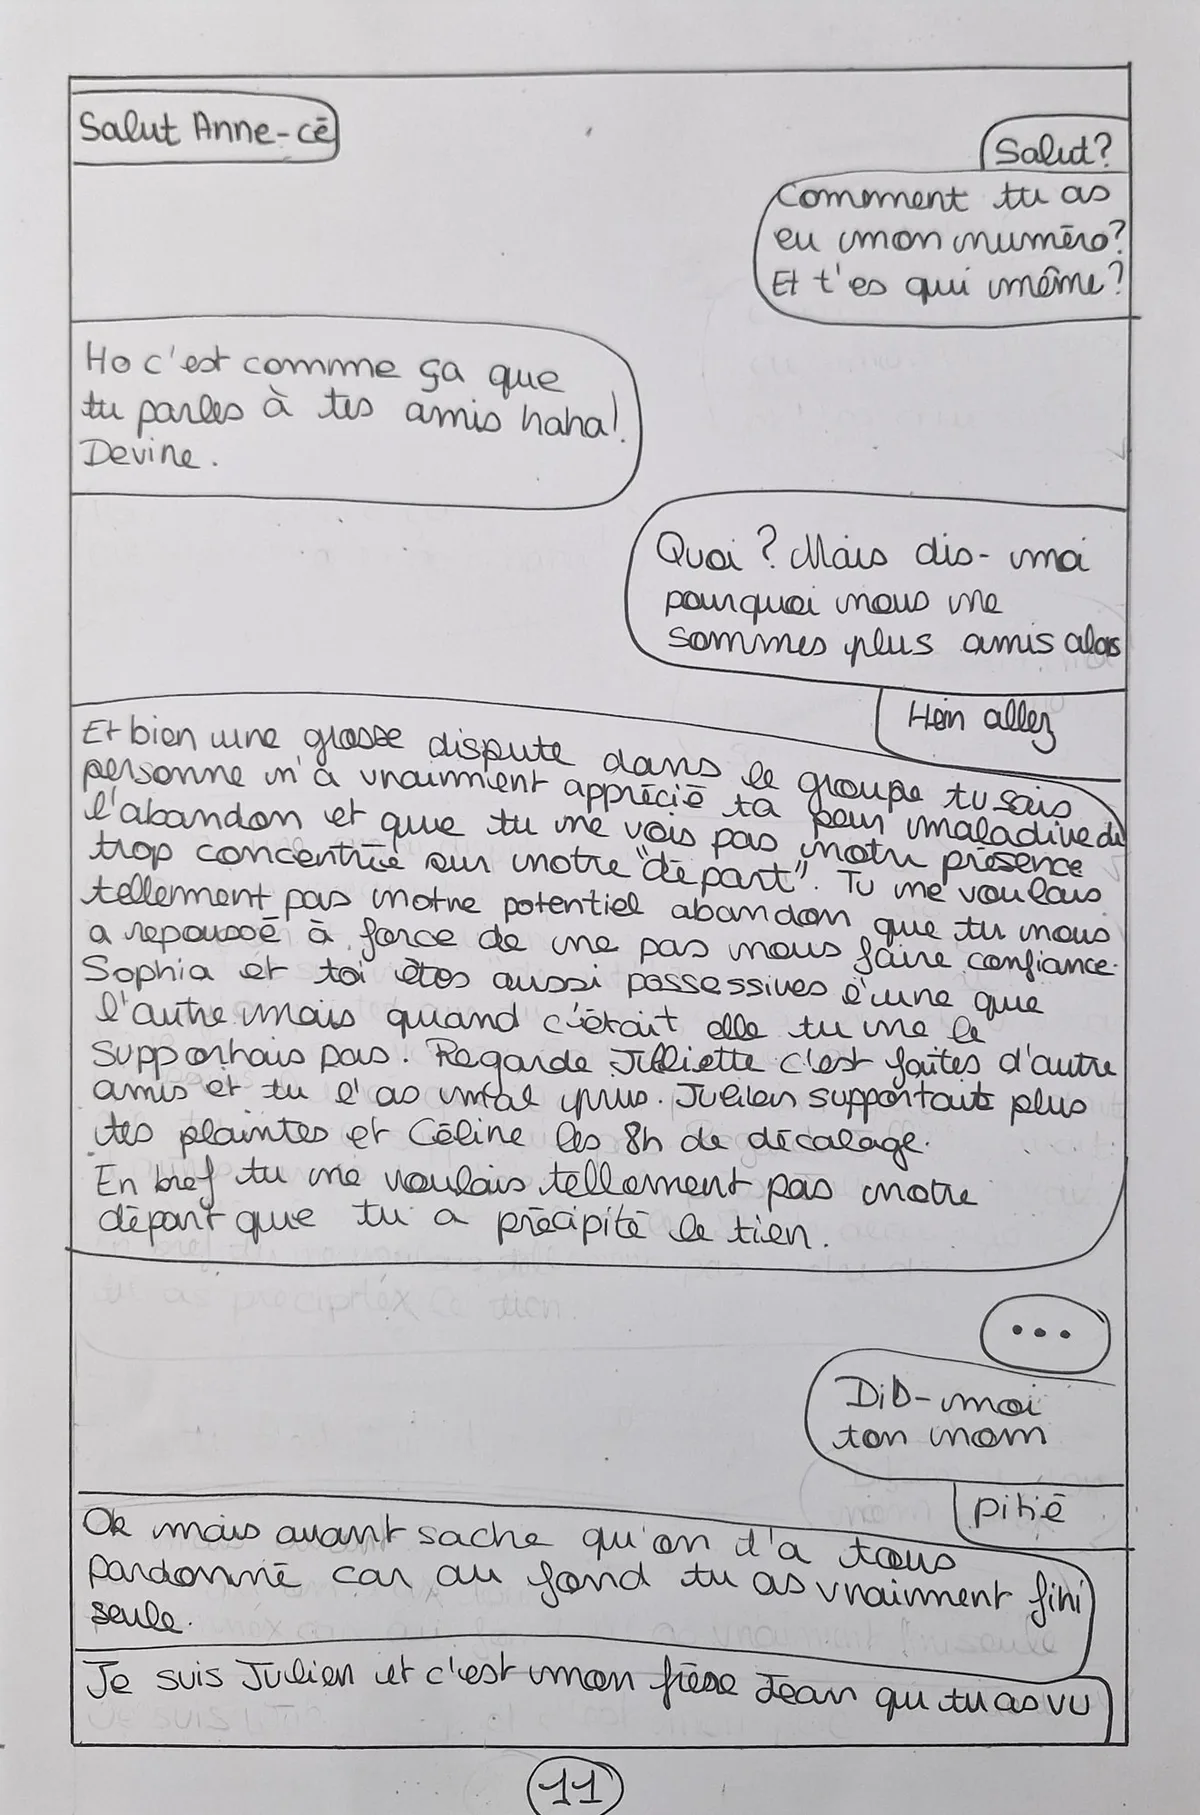 Salut Anne-cé
Salut?
Comment tu as
eu mon numéro?
Et t'es qui même?
Ho c'est comme ça que
tu parles à tes amis haha!
Devine.
Quoi? Mais dis-moi
pourquoi nous ne
sommes plus amis alors
Hein allez
Et bien une grosse dispute dans le groupe tu sais
personne n'a vraiment apprécié ta peur maladive de
l'abandon et que tu ne vois pas notre présence
trop concentrée sur notre "départ". Tu ne voulais
tellement pas notre potentiel abandon que tu nous
a repoussé à force de ne pas nous faire confiance.
Sophia et toi êtes aussi possessives l'une que
l'autre mais quand c'était elle tu ne le
supportais pas. Regarde Juliette c'est faites d'autre
amis et tu l'as mal pris. Julien supportait plus
tes plaintes et Céline les 8h de décalage.
En bref tu ne voulais tellement pas notre
départ que tu a précipité le tien.
...
Dis-moi
ton nom
pitié
Ok mais avant sache qu'on t'a tous
pardonné car au fond tu as vraiment fini
seule.
Je suis Julien et c'est mon frère Jean qu tu as vu
11